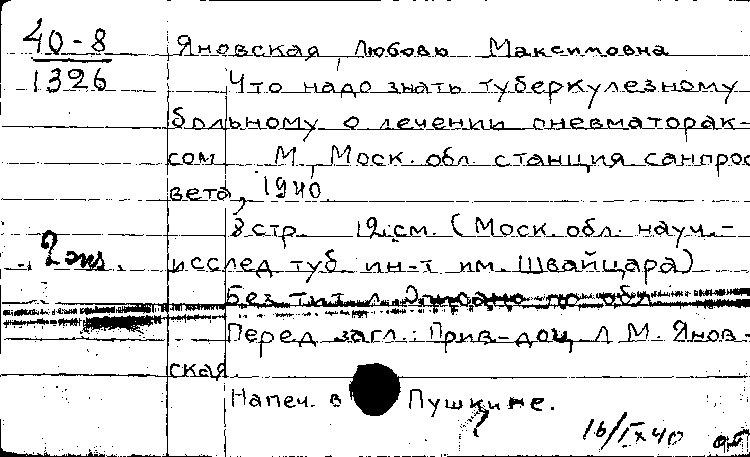 40-8
1326
Яновская, Любовь Максимовна
Что надо знать туберкулезному
больному о лечении пневматорак-
сом М., Моск. обл. станция санпрос
вета, 1940.
8 стр. 12 см. (Моск. обл. науч.-
2 экз.
исслед туб. ин-т им. Швайцара)
Без тит л. Описано по обл.
Перед загл.: Прив-доц. Л. М. Янов-
ская.
Напеч. в Пушкине.
16/IX 40